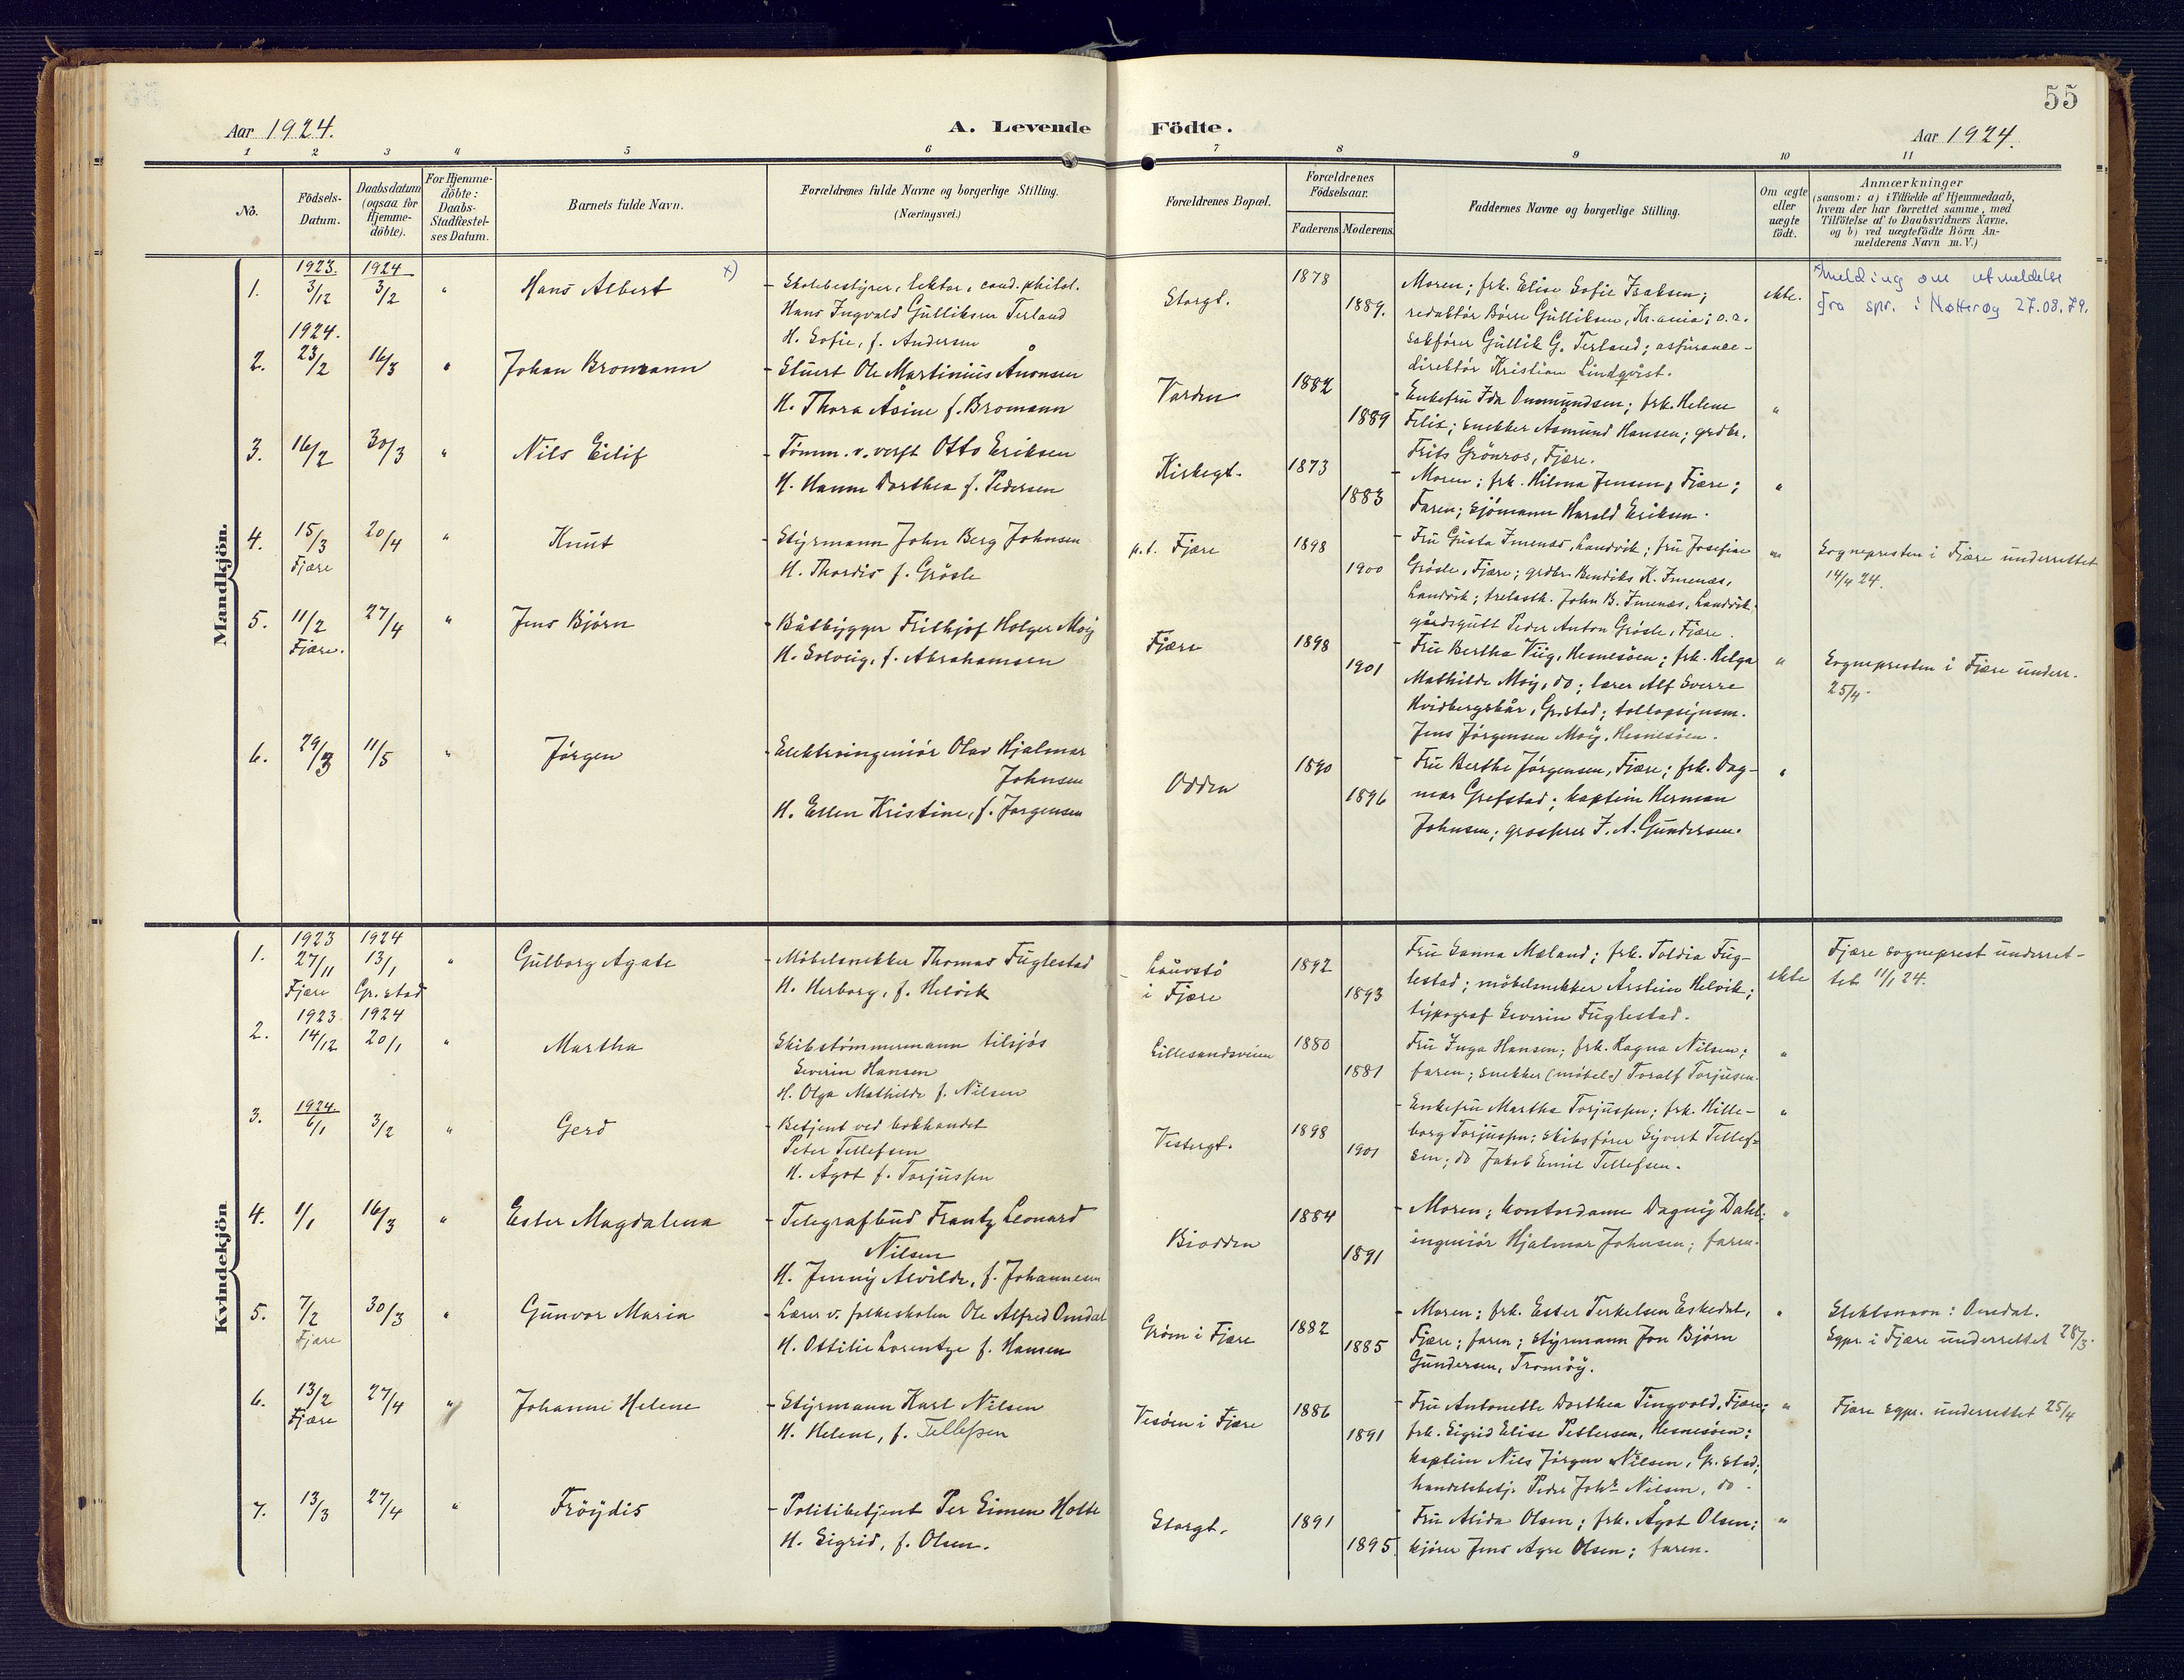 55
Aar 1924.
A. Levende Födte.
Aar 1924.
1 2 3 4 5 6 7 8 9 10 11
No.
Födsels-Datum.
Daabsdatum (ogsaa for Hjemmedöbte).
For Hjemmedöbte: Daabs-Stadfæstelses Datum.
Barnets fulde Navn.
Forældrenes fulde Navne og borgerlige Stilling.
(Næringsvei.)
Forældrenes Bopæl.
Forældrenes Födselsaar.
Faderens Moderens
Faddernes Navne og borgerlige Stilling.
Om ægte eller uægte födt.
Anmærkninger
(saasom: a) i Tilfælde af Hjemmedaab,
hvem der har forrettet samme, med
Tilföielse af to Daabsvidners Navne,
og b) ved uægtefödte Börn An-
melderens Navn m. V.)
Mandkjön.
1. 1923. 3/12 1924 3/2 " Hans Albert x)
- Skolebestyrer, lektor, cand. philol.
Hans Ingvald Gulliksen Terland
H. Sofie, f. Andersen
Storgt. 1878 1889.
Moren; frk. Elise Sofie Isaksen;
redaktör Börre Gulliksen, Kr.ania; o.r.
sakförer Gullik G. Terland; assurance-
direktör Kristian Lindqvist.
ekte.
x) melding om utmeldelse
fra spr. i Nøtterøy 27.08.79.
2. 1924. 23/2 16/3 " Johan Bromann
- Stuert Ole Martinius Ånonsen
H. Thora Åsine f. Bromann
Varden 1882 1889
- Enkefru Ida Onmundsen; frk. Helene
Felix; snekker Åsmund Hansen; grdbr.
Frits Grönros, Fjære.
"
3. 16/2 30/3 " Nils Eilif
- Tömm. v. verft Otto Eriksen
H. Hanna Dorthea f. Pedersen
Kirkegt. 1873 1883
- Moren; frk. Hilma Jensen, Fjære;
Faren; sjömann Harald Eriksen.
"
4. 15/3 Fjære 20/4 " Knut
- Styrmann John Berg Johnsen
H. Thordis f. Grösle
p.t. Fjære 1898 1900
- Fru Gusta Imenes, Landvik; fru Josefine
Grösle, Fjære; grdbr. Bendiks K. Imenæs,
Landvik; trelasth. John B. Imenæs, Landvik;
gårdsgutt Peder Anton Grösle, Fjære.
"
Sognepresten i Fjære underrettet
14/4 24.
5. 11/2 Fjære. 27/4 " Jens Björn
- Båtbygger Frithjof Holger Moy
H. Solveig, f. Abrahamsen
Fjære 1898 1901
- Fru Bertha Viig, Hesnesöen; frk. Helga
Mathilde Moy, do; lærer Alf Sverre
Hvidbergskår, Gr.stad; tollopsynsm.
Jens Jörgensen Moy, Hesnesöen.
"
Sognepresten i Fjære underr.
25/4.
6. 29/3 11/5 " Jörgen
- Elektroingeniör Olav Hjalmar
Johnsen
H. Ellen Kristine, f. Jörgensen
Odden 1890 1896
- Fru Berthe Jörgensen, Fjære; frk. Dag-
mar Grefstad; kaptein Herman
Johnsen; grosserer J. A. Gundersen.
"
Kvindekjön
1. 1923 27/11 Fjære 1924 13/1 Gr.stad " Gulborg Agate
- Möbelsnekker Thomas Fuglestad
H. Herborg, f. Helvik
Lauvstö
i Fjære 1892 1893
Fru Sanna Mæland; frk. Toldia Fug-
lestad; möbelsnekker Årstein Helvik;
typograf Severin Fuglestad.
ekte
Fjære sogneprest underret-
tet 11/1 24.
2. 1923 14/12 1924 20/1 " Martha
Skibstömmermann tilsjös
Severin Hansen
H. Olga Mathilde f. Nilsen
Lillesandsveien 1880 1881
Fru Inga Hansen; frk. Ragna Nilsen;
faren; snekker (möbel-) Toralf Torjusen.
"
3. 1924 6/1 3/2 " Gerd
- Betjent ved bokhandel
Peter Tellefsen
H. Ågot f. Torjussen
Vestergt. 1898 1901
- Enkefru Martha Torjussen; frk. Hille-
borg Torjussen; skibsförer Syvert Tellef-
sen; do Jakob Emil Tellefsen.
"
4. 1/1 16/3 " Ester Magdalena
- Telegrafbud Frantz Leonard
Nilsen
H. Jenny Alvilde, f. Johannesen
Biodden 1884 1891
- Moren; kontordame Dagny Dahl;
ingeniör Hjalmar Johnsen; faren.
"
5. 7/2 Fjære 30/3 " Gunvor Maria
- Lærer v. folkeskolen Ole Alfred Omdal
H. Ottilie Lorentze f. Hansen
Gröm i Fjære 1882 1885
- Moren; frk. Ester Terkelsen Eskedal,
Fjære; faren; styrmann Jon Björn
Gundersen, Tromöy.
"
Slektsnavn: Omdal.
Sgpr. i Fjære underrettet 28/3.
6. 13/2 Fjære 27/4 " Johanne Helene
- Styrmann Karl Nilsen
H. Helene, f. Tellefsen
Vesöen i Fjære 1886 1891
- Fru Antonette Dorthea Tingvold, Fjære;
frk. Sigrid Elise Pettersen, Hesnesöen;
kaptein Nils Jörgen Nilsen, Gr.stad;
handelsbetj. Peder Johs Nilsen, do.
"
Fjære sgpr. underrettet 25/4
7. 13/3 27/4 " Fröydis
- Politibetjent Per Simen Holte
H. Sigrid, f. Olsen.
Storgt. 1891 1895.
- Fru Alida Olsen; frk. Ågot Olsen;
kjörer Jens Agre Olsen; faren.
"